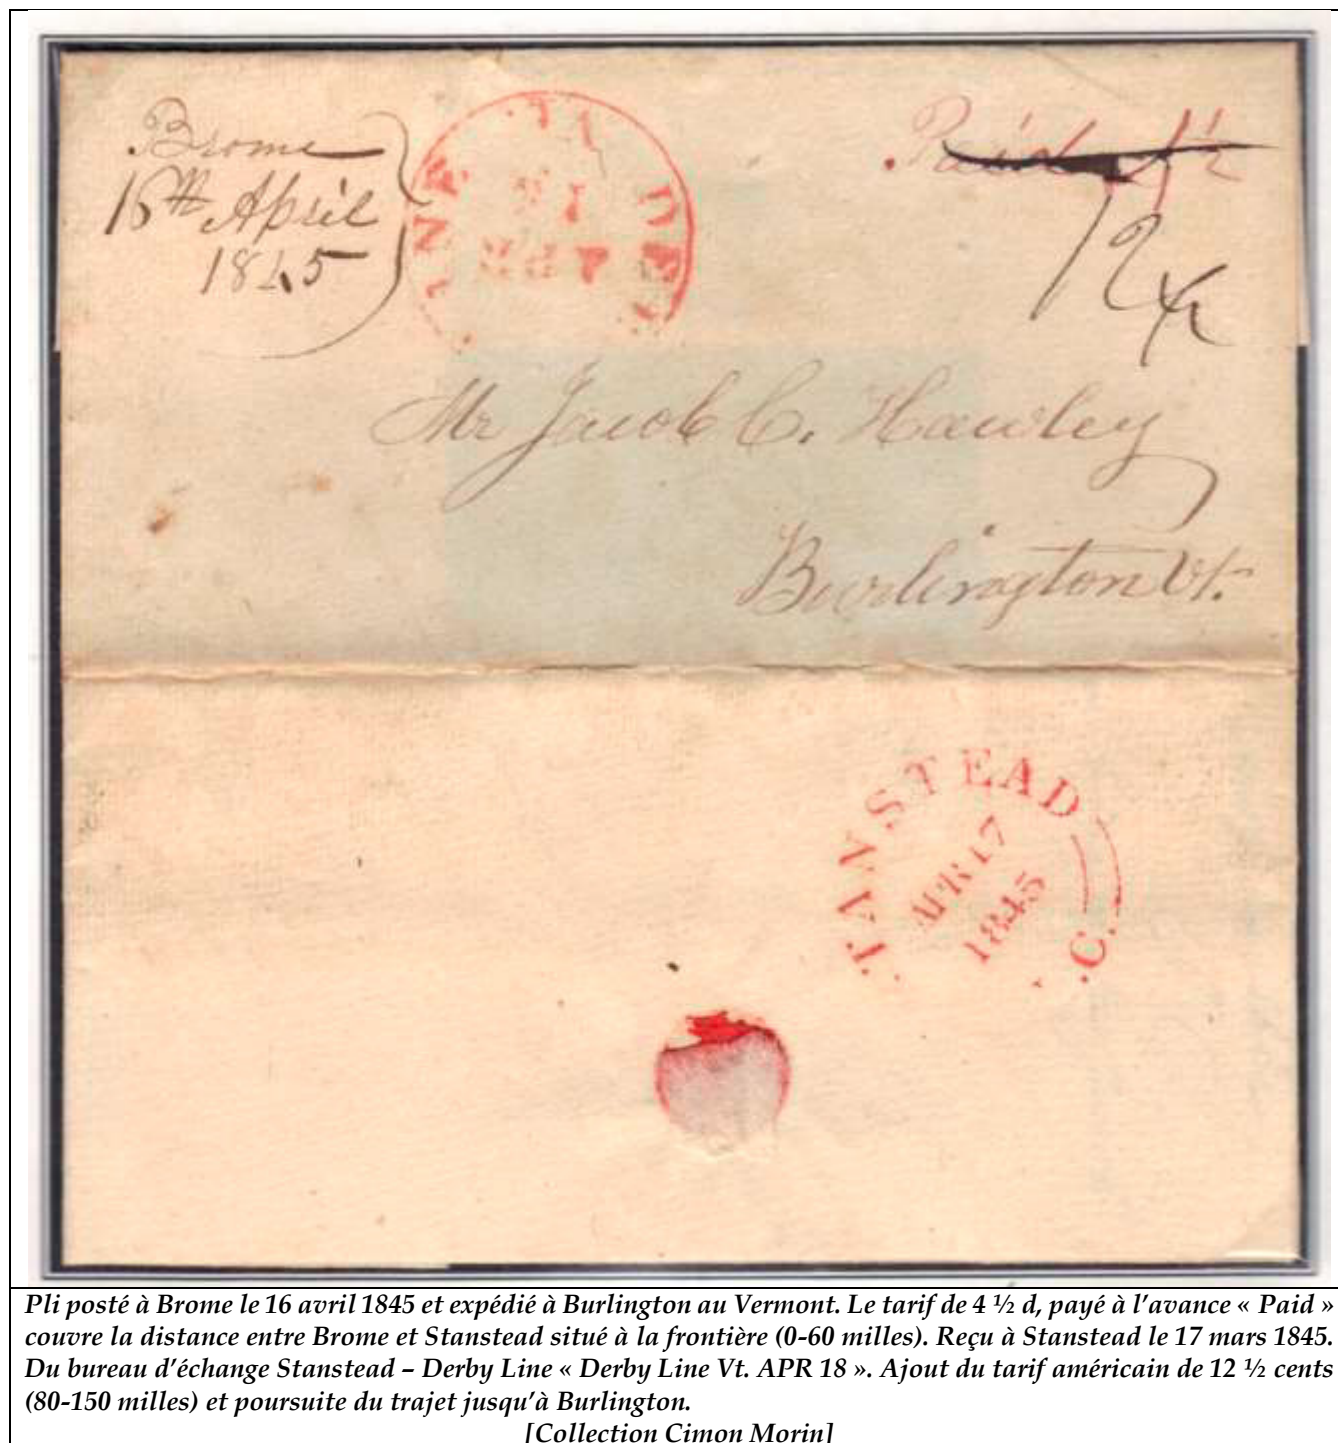 Brome
16th April
1845
Paid 4½
12½
APR
18
Mr Jacob C. Hawley
Burlington Vt.
TANSTEAD
APR 17
1845
.C.
Pli posté à Brome le 16 avril 1845 et expédié à Burlington au Vermont. Le tarif de 4 ½ d, payé à l’avance « Paid »
couvre la distance entre Brome et Stanstead situé à la frontière (0-60 milles). Reçu à Stanstead le 17 mars 1845.
Du bureau d’échange Stanstead – Derby Line « Derby Line Vt. APR 18 ». Ajout du tarif américain de 12 ½ cents
(80-150 milles) et poursuite du trajet jusqu’à Burlington.
[Collection Cimon Morin]